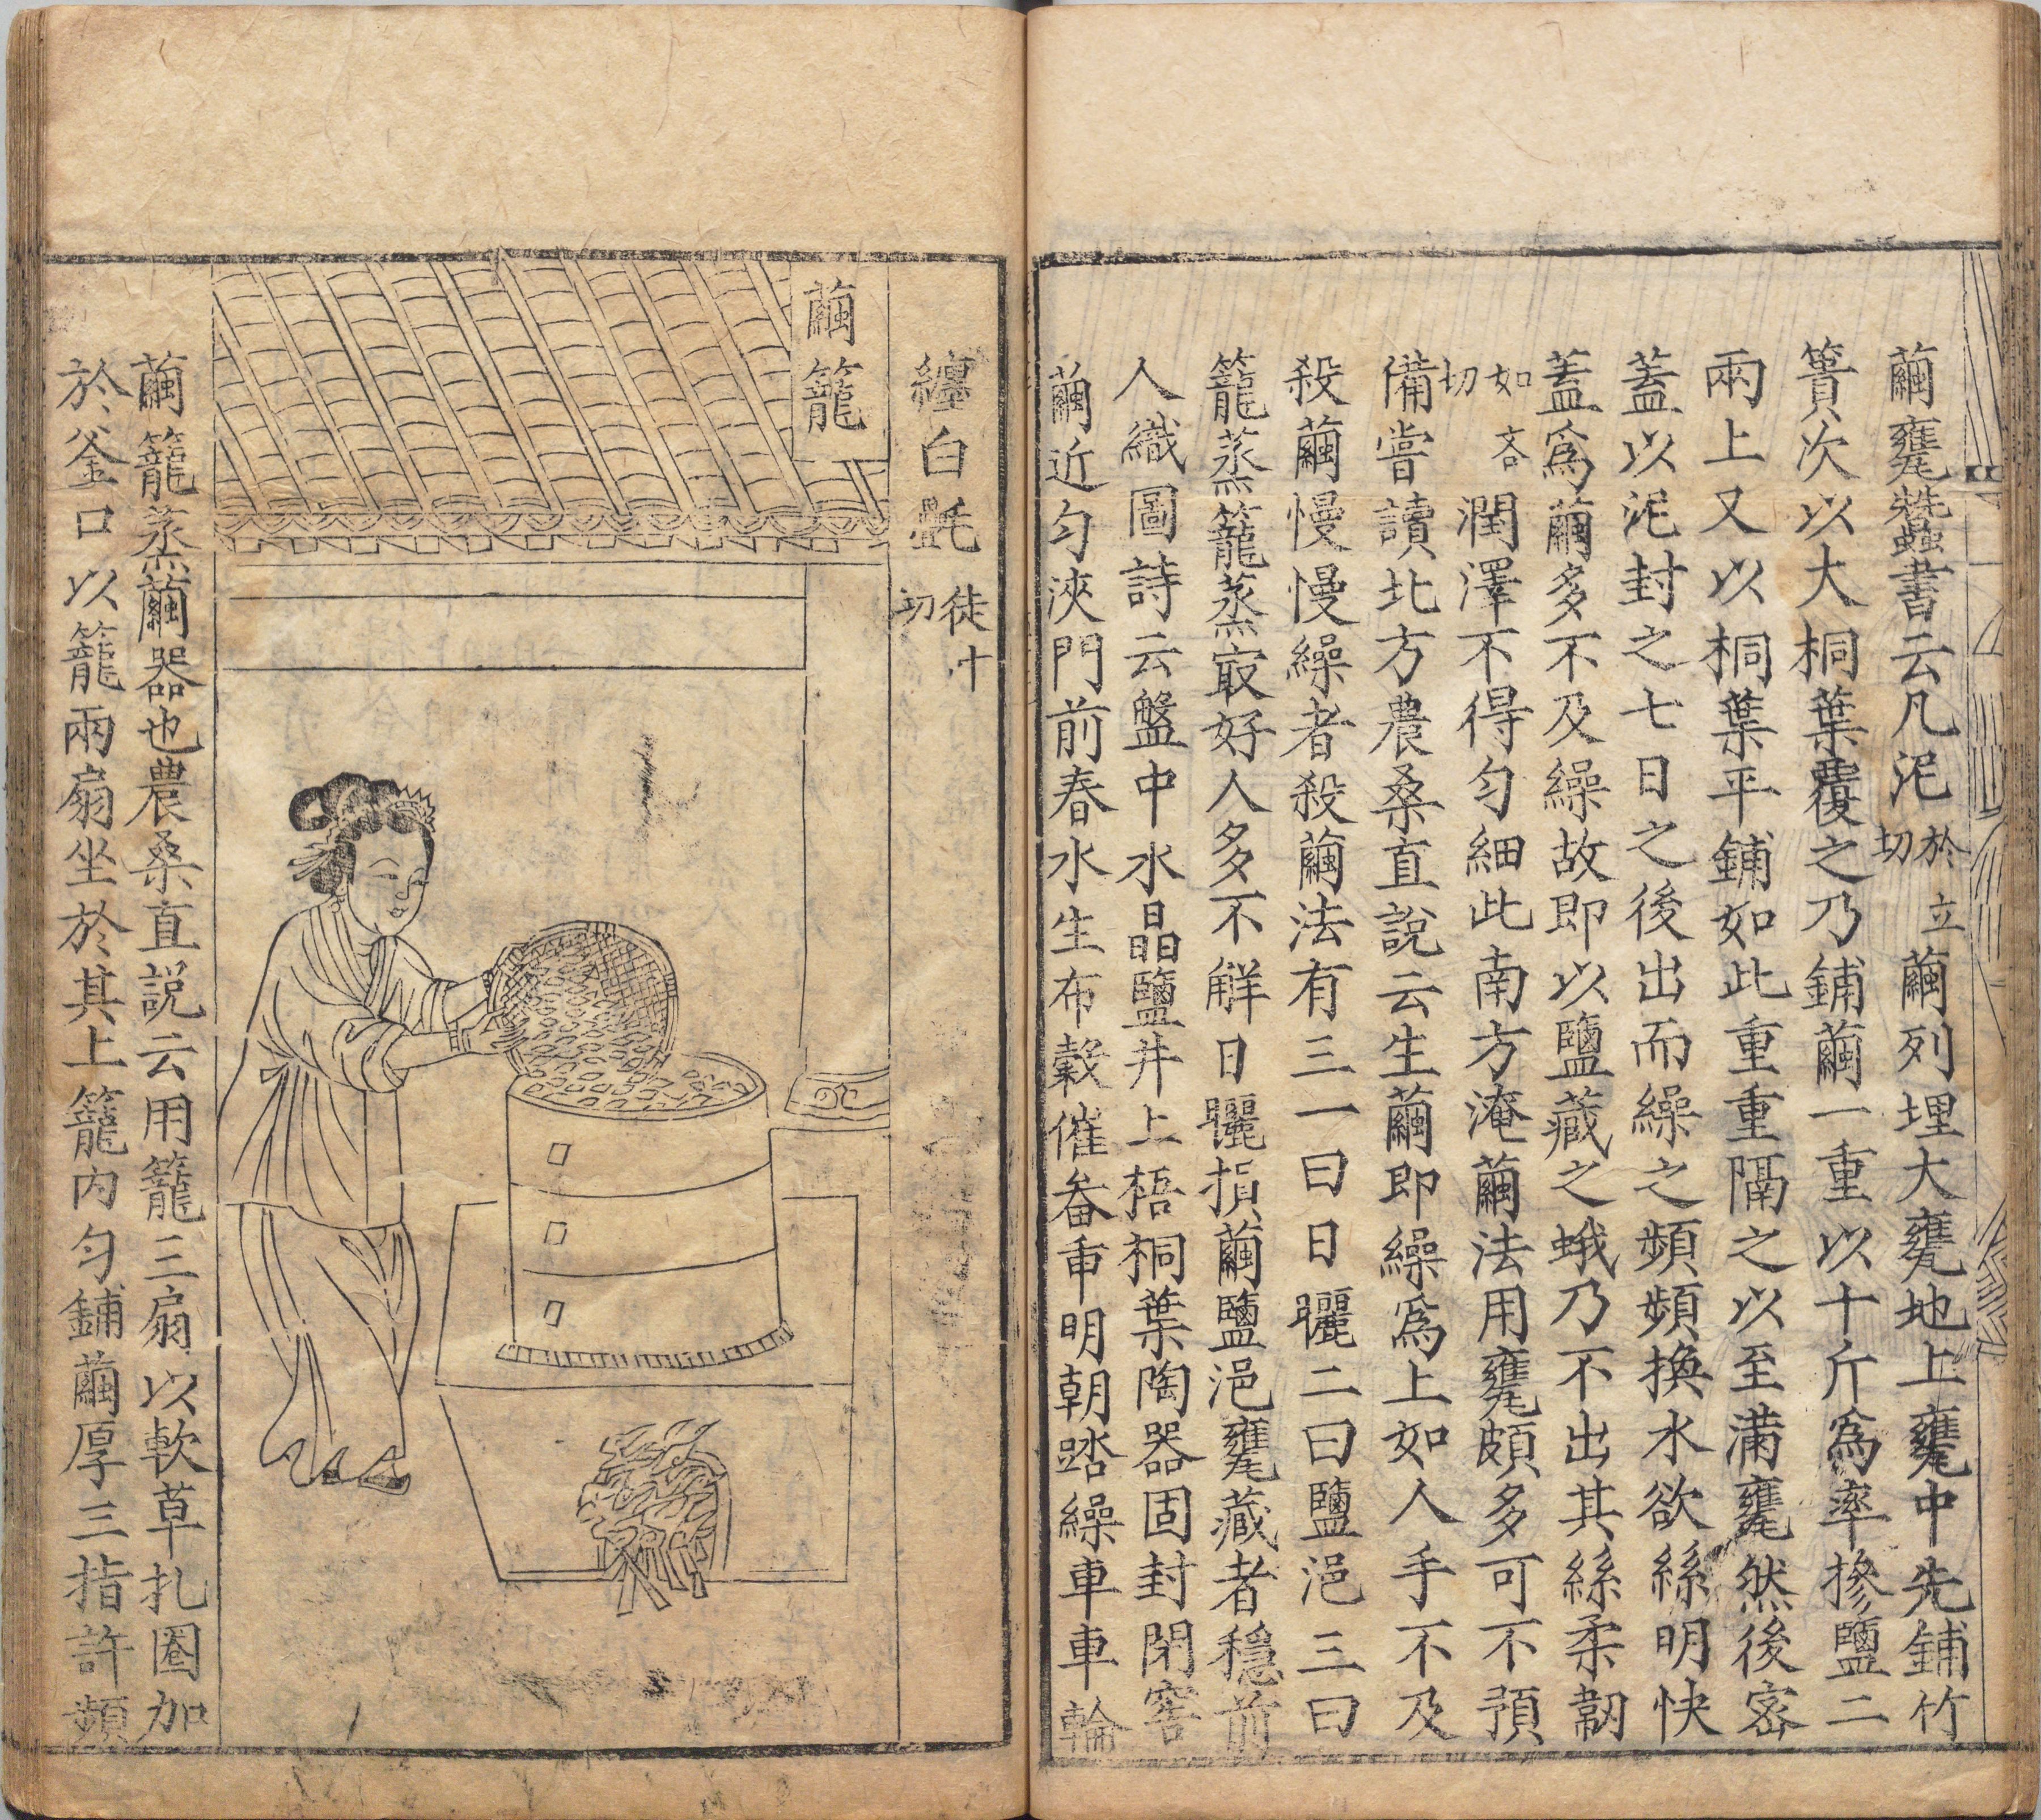 繭甕蠶書云凡浥於立切繭列埋大甕地上甕中先鋪竹
簀次以大桐葉覆之乃鋪繭一重以十斤爲率摻鹽二
兩上又以桐葉平鋪如此重重隔之以至滿甕然後密
蓋以泥封之七日之後出而繰之頻頻換水欲絲明快
蓋爲繭多不及繰故即以鹽藏之蛾乃不出其絲柔韌
如吝切潤澤不得勻細此南方淹繭法用甕頗多可不預
備嘗讀北方農桑直說云生繭即繰爲上如人手不及
殺繭慢慢繰者殺繭法有三一曰日曬二曰鹽浥三曰
籠蒸籠蒸㝡好人多不解日曬損繭鹽浥甕藏者穩前
人織圖詩云盤中水晶鹽井上梧桐葉陶器固封閉窖
繭近勻浹門前春水生布穀催畚重明朝踏繰車車輪
纏白㲲徒十切
繭籠
繭籠蒸繭器也農桑直說云用籠三扇以軟草扎圈加
於釜口以籠兩扇坐於其上籠內勻鋪繭厚三指許頻